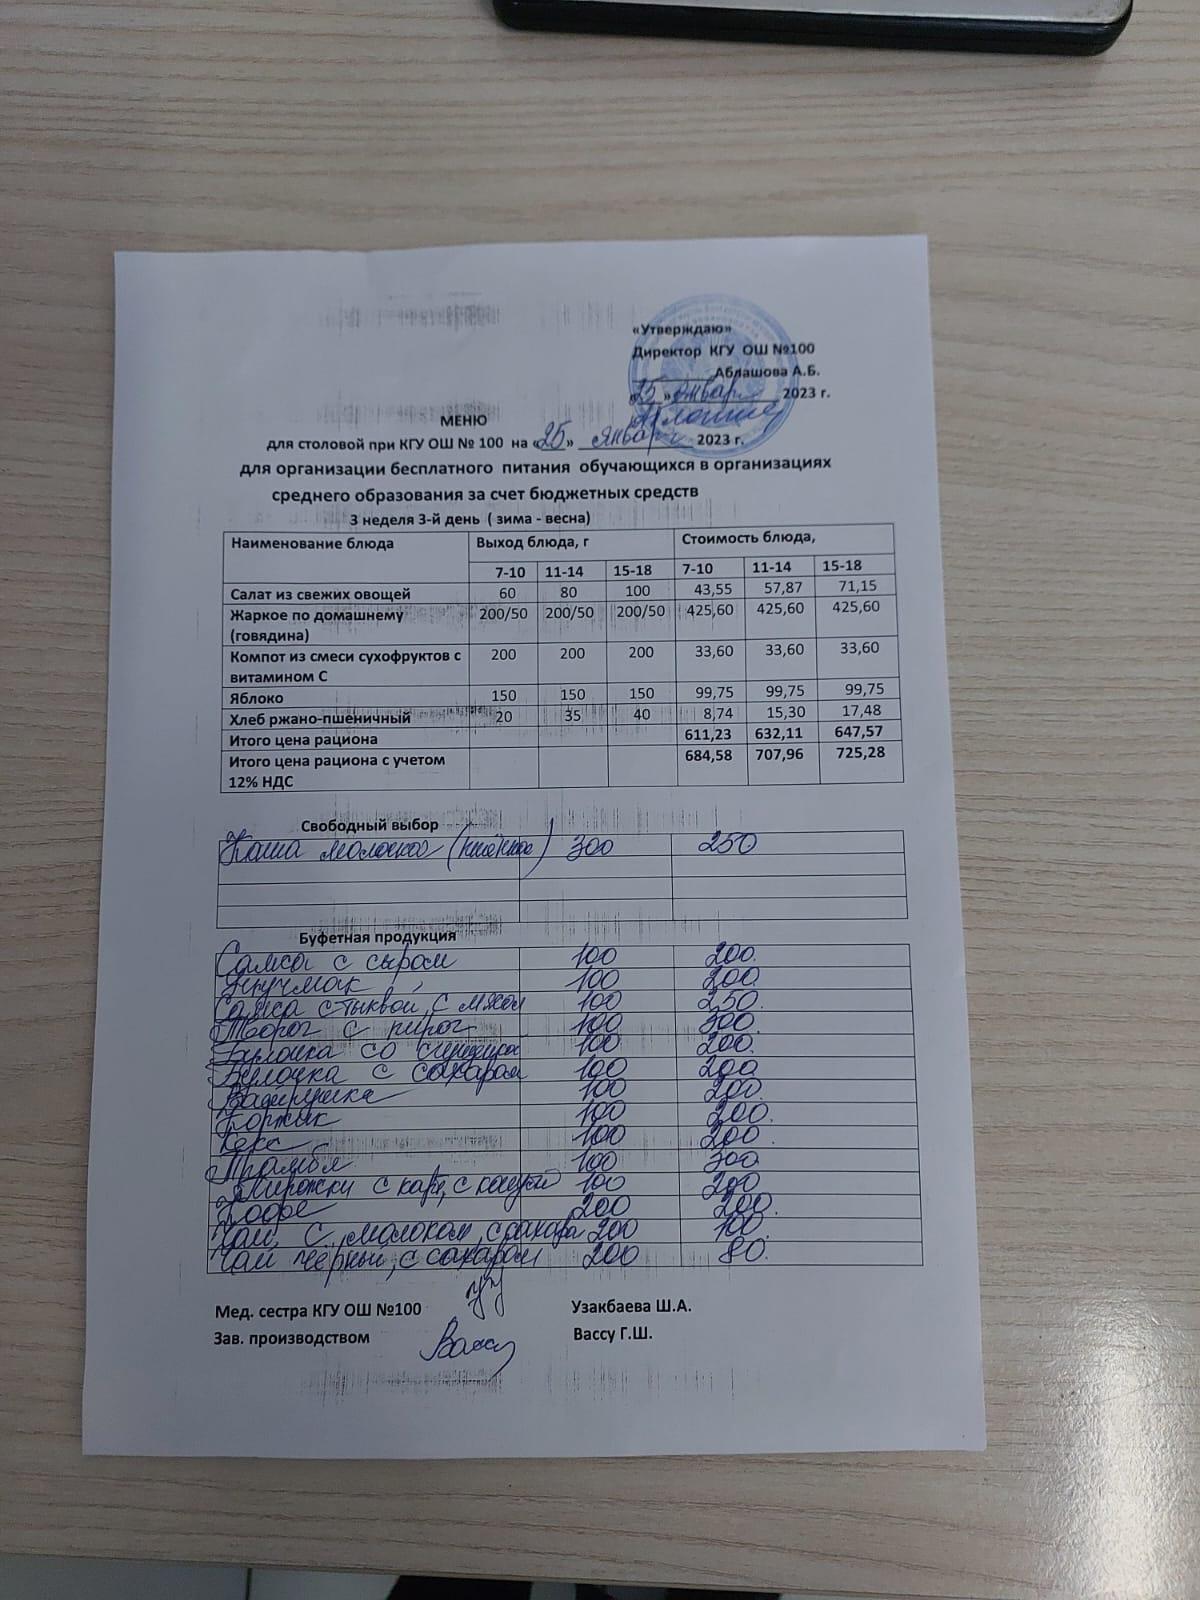 «Утверждаю»
Директор КГУ ОШ №100
Аблашова А.Б.
«25» январь 2023 г.
МЕНЮ
для столовой при КГУ ОШ № 100 на «25» январь 2023 г.
для организации бесплатного питания обучающихся в организациях
среднего образования за счет бюджетных средств
3 неделя 3-й день ( зима - весна)
Наименование блюда Выход блюда, г Стоимость блюда,
7-10 11-14 15-18 7-10 11-14 15-18
Салат из свежих овощей 60 80 100 43,55 57,87 71,15
Жаркое по домашнему 200/50 200/50 200/50 425,60 425,60 425,60
(говядина)
Компот из смеси сухофруктов с 200 200 200 33,60 33,60 33,60
витамином С
Яблоко 150 150 150 99,75 99,75 99,75
Хлеб ржано-пшеничный 20 35 40 8,74 15,30 17,48
Итого цена рациона 611,23 632,11 647,57
Итого цена рациона с учетом 684,58 707,96 725,28
12% НДС
Свободный выбор
Каша молочная 300 250
Буфетная продукция
Самса с сыром 100 200.
100 200
Самса с тыквой, с мясом 100 250.
Творог с пирог 100 300.
Булочка со 100 200.
Булочка с сахаром 100 200
Ватрушка 100 200
Коржик 100 200.
Кекс 100 200.
100 300
Пирожки с карт, с капустой 100 200
Кофе 200 200.
Чай с молоком, с сахаром 200 100.
Чай чёрный, с сахаром 200 80.
Мед. сестра КГУ ОШ №100 Узакбаева Ш.А.
Зав. производством Вассу Вассу Г.Ш.